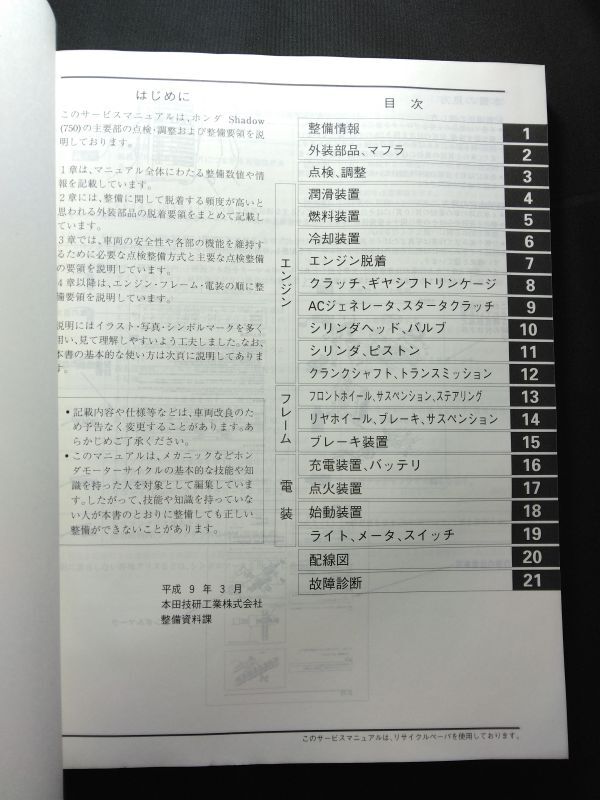 はじめに
このサービスマニュアルは、ホンダ Shadow
(750)の主要部の点検・調整および整備要領を説
明しております。
1章は、マニュアル全体にわたる整備数値や情
報を記載しています。
2章には、整備に関して脱着する頻度が高いと
思われる外装部品の脱着要領をまとめて記載し
ています。
3章では、車両の安全性や各部の機能を維持す
るために必要な点検整備方式と主要な点検整備
の要領を説明しています。
4章以降は、エンジン・フレーム・電装の順に整
備要領を説明しています。
説明にはイラスト・写真・シンボルマークを多く
用い、見て理解しやすいよう工夫しました。なお、
本書の基本的な使い方は次頁に説明してありま
す。
•記載内容や仕様等などは、車両改良のた
め予告なく変更することがあります。あ
らかじめご了承ください。
•このマニュアルは、メカニックなどホン
ダモーターサイクルの基本的な技能や知
識を持った人を対象として編集していま
す。したがって、技能や知識を持っていな
い人が本書のとおりに整備しても正しい
整備ができないことがあります。
平成 9 年 3 月
本田技研工業株式会社
整備資料課
目 次
整備情報 1
外装部品、マフラ 2
点検、調整 3
エンジン
潤滑装置 4
燃料装置 5
冷却装置 6
エンジン脱着 7
クラッチ、ギヤシフトリンケージ 8
ACジェネレータ、スタータクラッチ 9
シリンダヘッド、バルブ 10
シリンダ、ピストン 11
クランクシャフト、トランスミッション 12
フレーム
フロントホイール、サスペンション、ステアリング 13
リヤホイール、ブレーキ、サスペンション 14
ブレーキ装置 15
電装
充電装置、バッテリ 16
点火装置 17
始動装置 18
ライト、メータ、スイッチ 19
配線図 20
故障診断 21
このサービスマニュアルは、リサイクルペーパを使用しております。